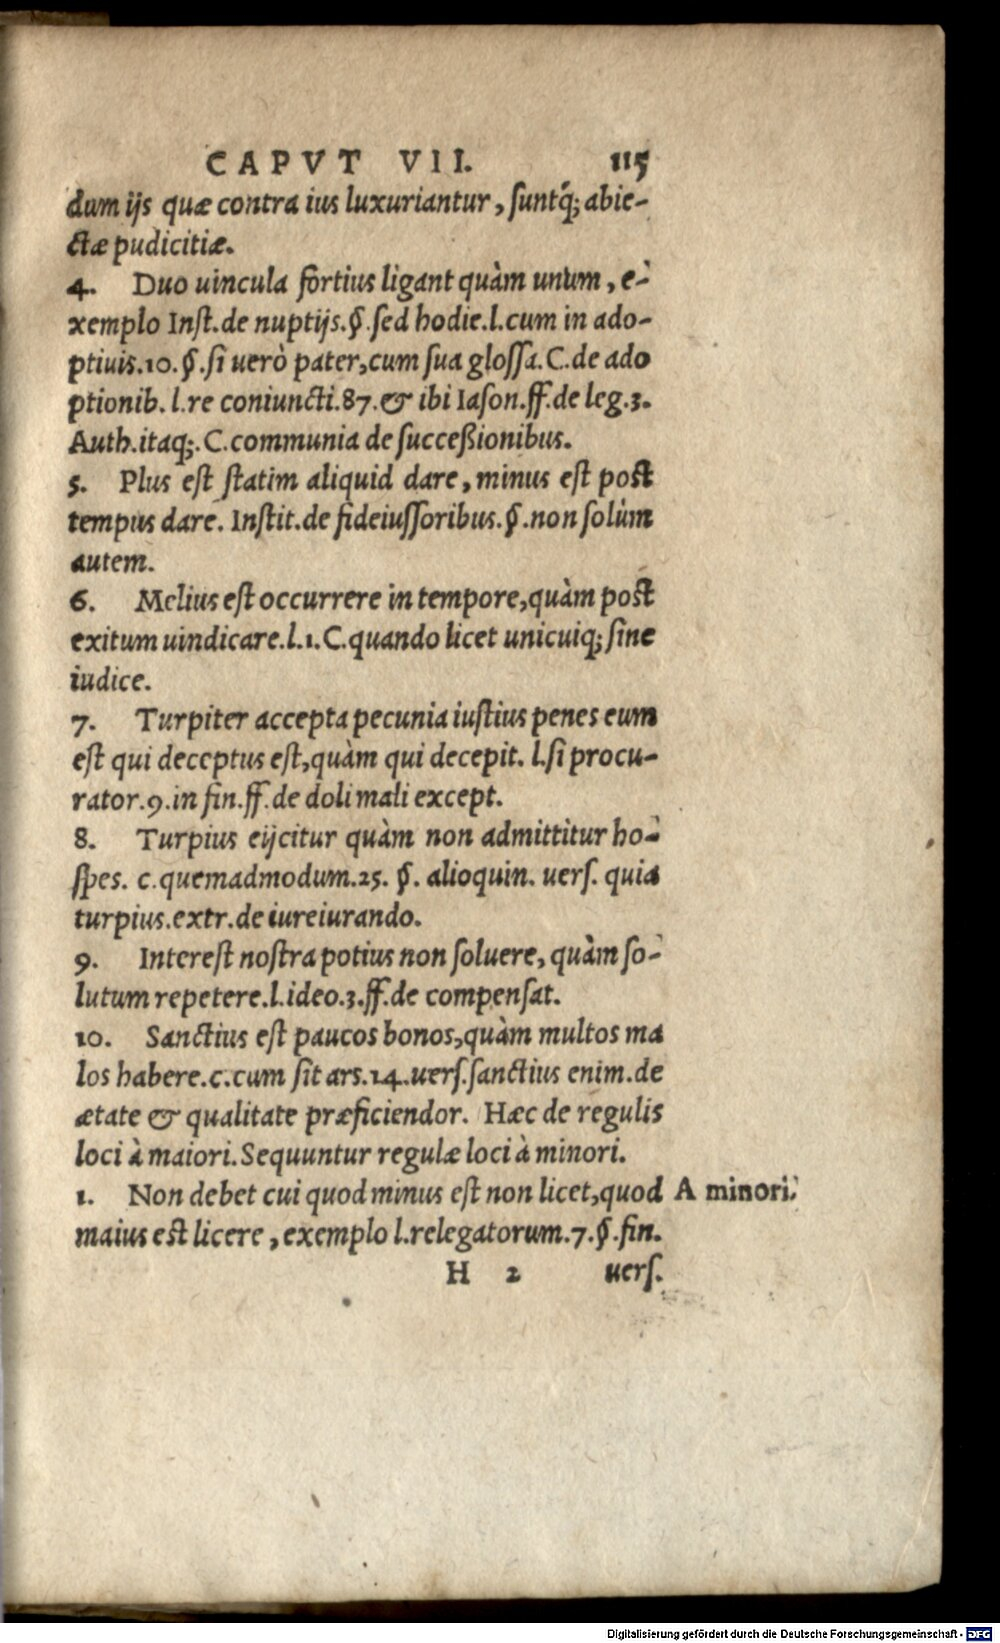 CAPVT VII. 115
dum ijs quæ contra ius luxuriantur, suntq́; abie-
ctæ pudicitiæ.
4. Duo uincula fortius ligant quàm unum, e-
xemplo Inst. de nuptijs. §. sed hodie. l. cum in ado-
ptiuis. 10. §. si uerò pater, cum sua glossa. C. de ado
ptionib. l. re coniuncti. 87. & ibi Iason. ff. de leg. 3.
Auth. itaq;. C. communia de succeßionibus.
5. Plus est statim aliquid dare, minus est post
tempus dare. Instit. de fideiussoribus. §. non solùm
autem.
6. Melius est occurrere in tempore, quàm post
exitum uindicare. l. 1. C. quando licet unicuiq; sine
iudice.
7. Turpiter accepta pecunia iustius penes eum
est qui deceptus est, quàm qui decepit. l. si procu-
rator. 9. in fin. ff. de doli mali except.
8. Turpius eijcitur quàm non admittitur ho-
spes. c. quemadmodum. 25. §. alioquin. uers. quia
turpius. extr. de iureiurando.
9. Interest nostra potius non soluere, quàm so-
lutum repetere. l. ideo. 3. ff. de compensat.
10. Sanctius est paucos bonos, quàm multos ma
los habere. c. cum sit ars. 14. uers. sanctius enim. de
ætate & qualitate præficiendor. Hæc de regulis
loci à maiori. Sequuntur regulæ loci à minori.
1. Non debet cui quod minus est non licet, quod A minori.
maius est licere, exemplo l. relegatorum. 7. §. fin.
H 2 uers.
Digitalisierung gefördert durch die Deutsche Forschungsgemeinschaft - DFG